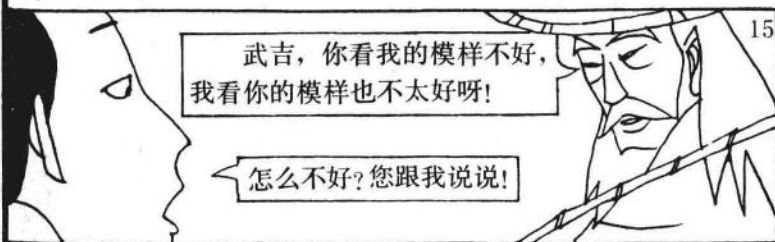 15
武吉，你看我的模样不好，
我看你的模样也不太好呀！
怎么不好？您跟我说说！